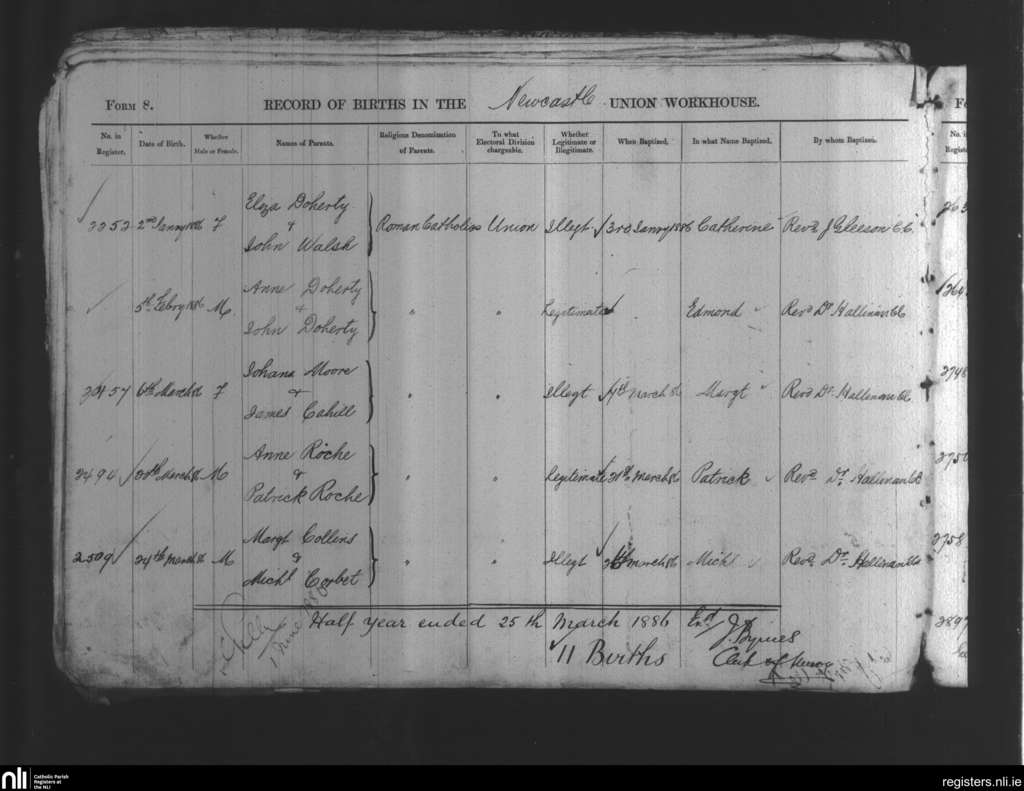 FORM 8. RECORD OF BIRTHS IN THE Newcastle UNION WORKHOUSE.
No. in Register. Date of Birth. Whether Male or Female. Names of Parents. Religious Denomination of Parents. To what Electoral Division chargeable. Whether Legitimate or Illegitimate. When Baptized. In what Name Baptized. By whom Baptized.
Eliza Doherty
2nd Janry 1886 F & Roman Catholics Union Illegt 3rd Janry 1886 Catherine Revd J Gleeson C.C.
John Walsh
Anne Doherty
5th Febry 1886 M & " " Legitimate Edmond Revd Dr Hallinan CC
John Doherty
Johana Moore
6th March 86 F & " " Illegt March 86 Margt Revd Dr Hallinan CC
James Cahill
Anne Roche
2494 March 86 M & " " Legitimate March 86 Patrick Revd Dr. Hallinan CC
Patrick Roche
Margt Collins
2509 24th March 86 M & " " Illegt March 86 Michl Revd Dr. Hallinan CC
Michl Corbet
Half year ended 25th March 1886
11 Births
J. Byrnes
Clerk of Union
nli Catholic Parish Registers at the NLI
registers.nli.ie